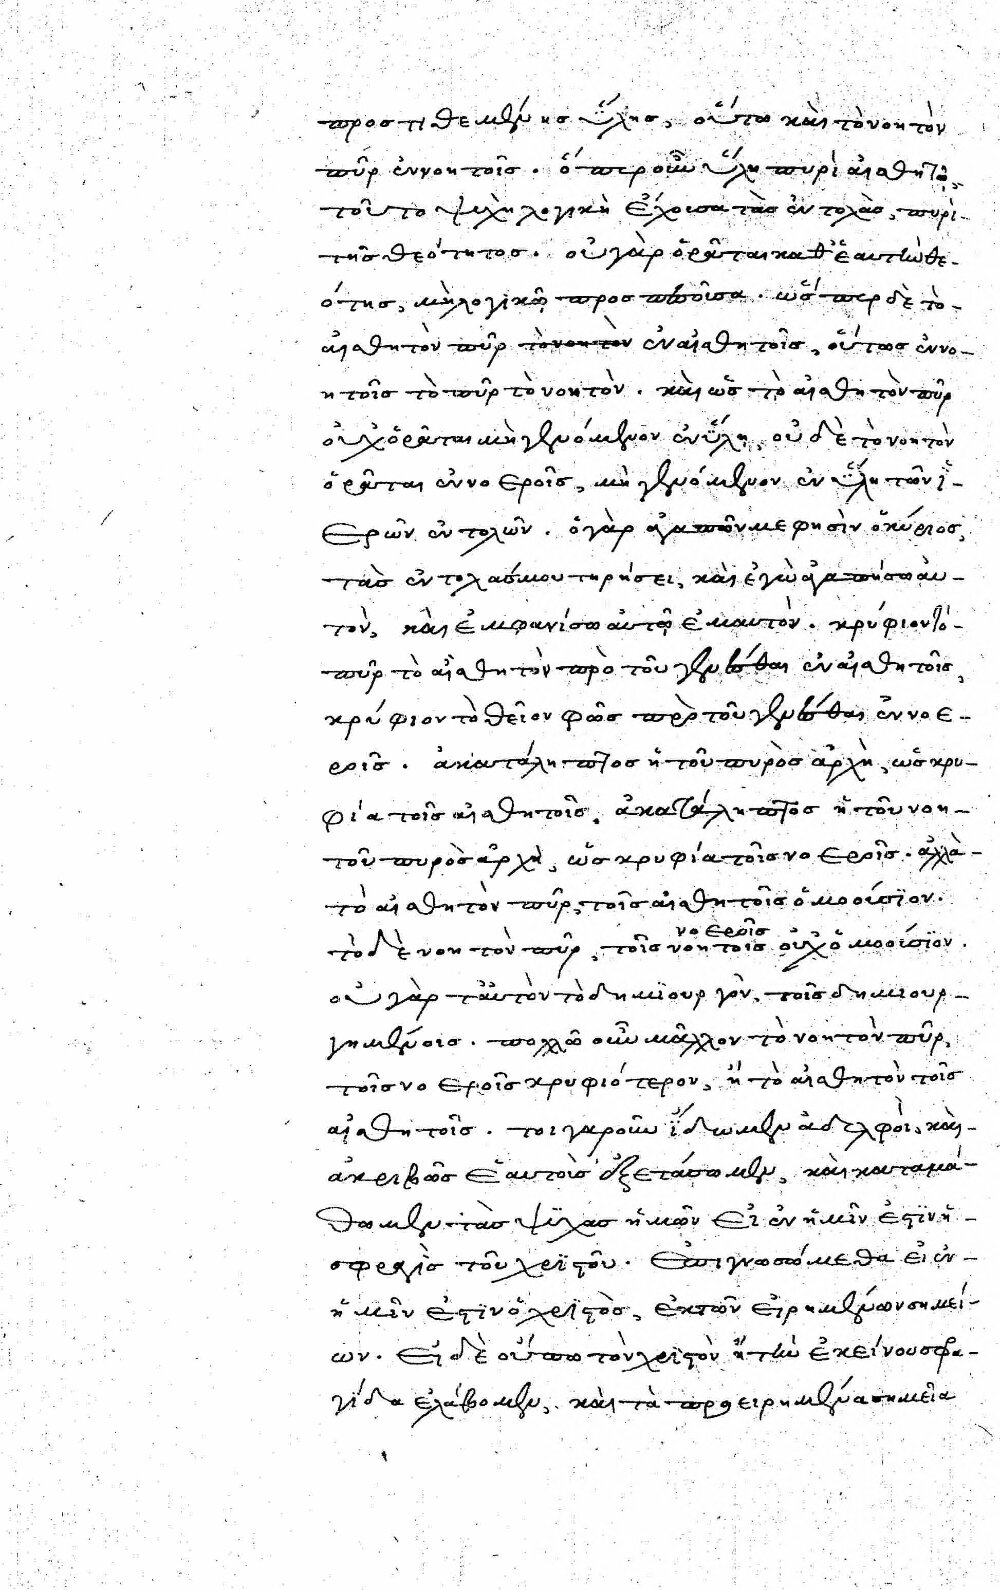 προστιθεμένης ὕλης, οὕτω καὶ τὸ νοητὸν
πῦρ ἐν νοητοῖς. ὅπερ οὖν ὕλη πυρὶ αἰσθητῷ,
τοῦτο ψυχὴ λογικὴ ἔχουσα τὰς ἐντολὰς, πυρὶ
τῆς θεότητος. οὐ γὰρ ὁρᾶται καθ' ἑαυτὴν θε-
ότης, μὴ λογικῷ προσποῦσα. ὥσπερ δὲ τὸ
αἰσθητὸν πῦρ τὸ νοητὸν ἐν αἰσθητοῖς, οὕτως ἐν νο-
ητοῖς τὸ πῦρ τὸ νοητόν. καὶ ὡς τὸ αἰσθητὸν πῦρ
οὐχ ὁρᾶται μὴ γενόμενον ἐν ὕλῃ, οὐδὲ τὸ νοητὸν
ὁρᾶται ἐν νοεροῖς, μὴ γενόμενον ἐν ὕλῃ τῶν ἱ-
ερῶν ἐντολῶν. ὁ γὰρ ἀγαπῶν με φησὶν ὁ κύριος,
τὰς ἐντολάς μου τηρήσει, καὶ ἐγὼ ἀγαπήσω αὐ-
τὸν, καὶ ἐμφανίσω αὐτῷ ἐμαυτόν. κρύφιον τὸ
πῦρ τὸ αἰσθητὸν πρὸ τοῦ γενέσθαι ἐν αἰσθητοῖς,
κρύφιον τὸ θεῖον φῶς πρὸ τοῦ γενέσθαι ἐν νοε-
ροῖς. ἀκατάληπτος ἡ τοῦ πυρὸς ἀρχὴ, ὡς κρυ-
φία τοῖς αἰσθητοῖς, ἀκατάληπτος ἡ τοῦ νοη-
τοῦ πυρὸς ἀρχὴ, ὡς κρυφία τοῖς νοεροῖς. ἀλλὰ
τὸ αἰσθητὸν πῦρ, τοῖς αἰσθητοῖς ὁμοούσιον.
νοεροῖς
τὸ δὲ νοητὸν πῦρ, τοῖς νοητοῖς οὐχ ὁμοούσιον.
οὐ γὰρ ταὐτὸν τὸ δημιουργὸν, τοῖς δημιουρ-
γημένοις. πολλῷ οὖν μᾶλλον τὸ νοητὸν πῦρ,
τοῖς νοεροῖς κρυφιότερον, ἢ τὸ αἰσθητὸν τοῖς
αἰσθητοῖς. τοιγαροῦν ἴδωμεν ἀδελφοὶ, καὶ
ἀκριβῶς ἑαυτοὺς ἐξετάσωμεν, καὶ καταμά-
θωμεν τὰς ψυχὰς ἡμῶν εἰ ἐν ἡμῖν ἐστιν ἡ
σφραγὶς τοῦ χριστοῦ. ἐπιγνωσόμεθα εἰ ἐν
ἡμῖν ἐστιν ὁ χριστὸς, ἐκ τῶν εἰρημένων σημεί-
ων. εἰ δὲ οὔπω τὸν χριστὸν ἢ τὴν ἐκείνου σφρα-
γίδα ἐλάβομεν, καὶ τὰ προειρημένα σημεῖα